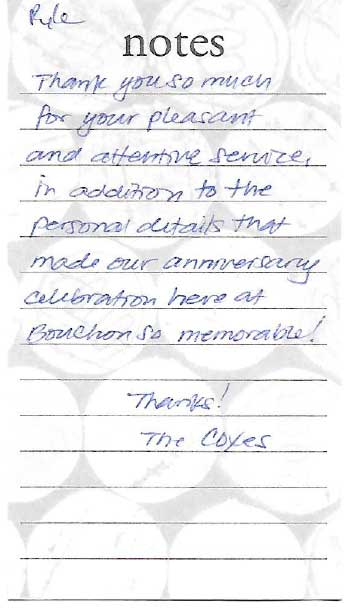 Kyle
notes
Thank you so much
for your pleasant
and attentive service,
in addition to the
personal details that
made our anniversary
celebration here at
Bouchon so memorable!
Thanks!
The Coxes